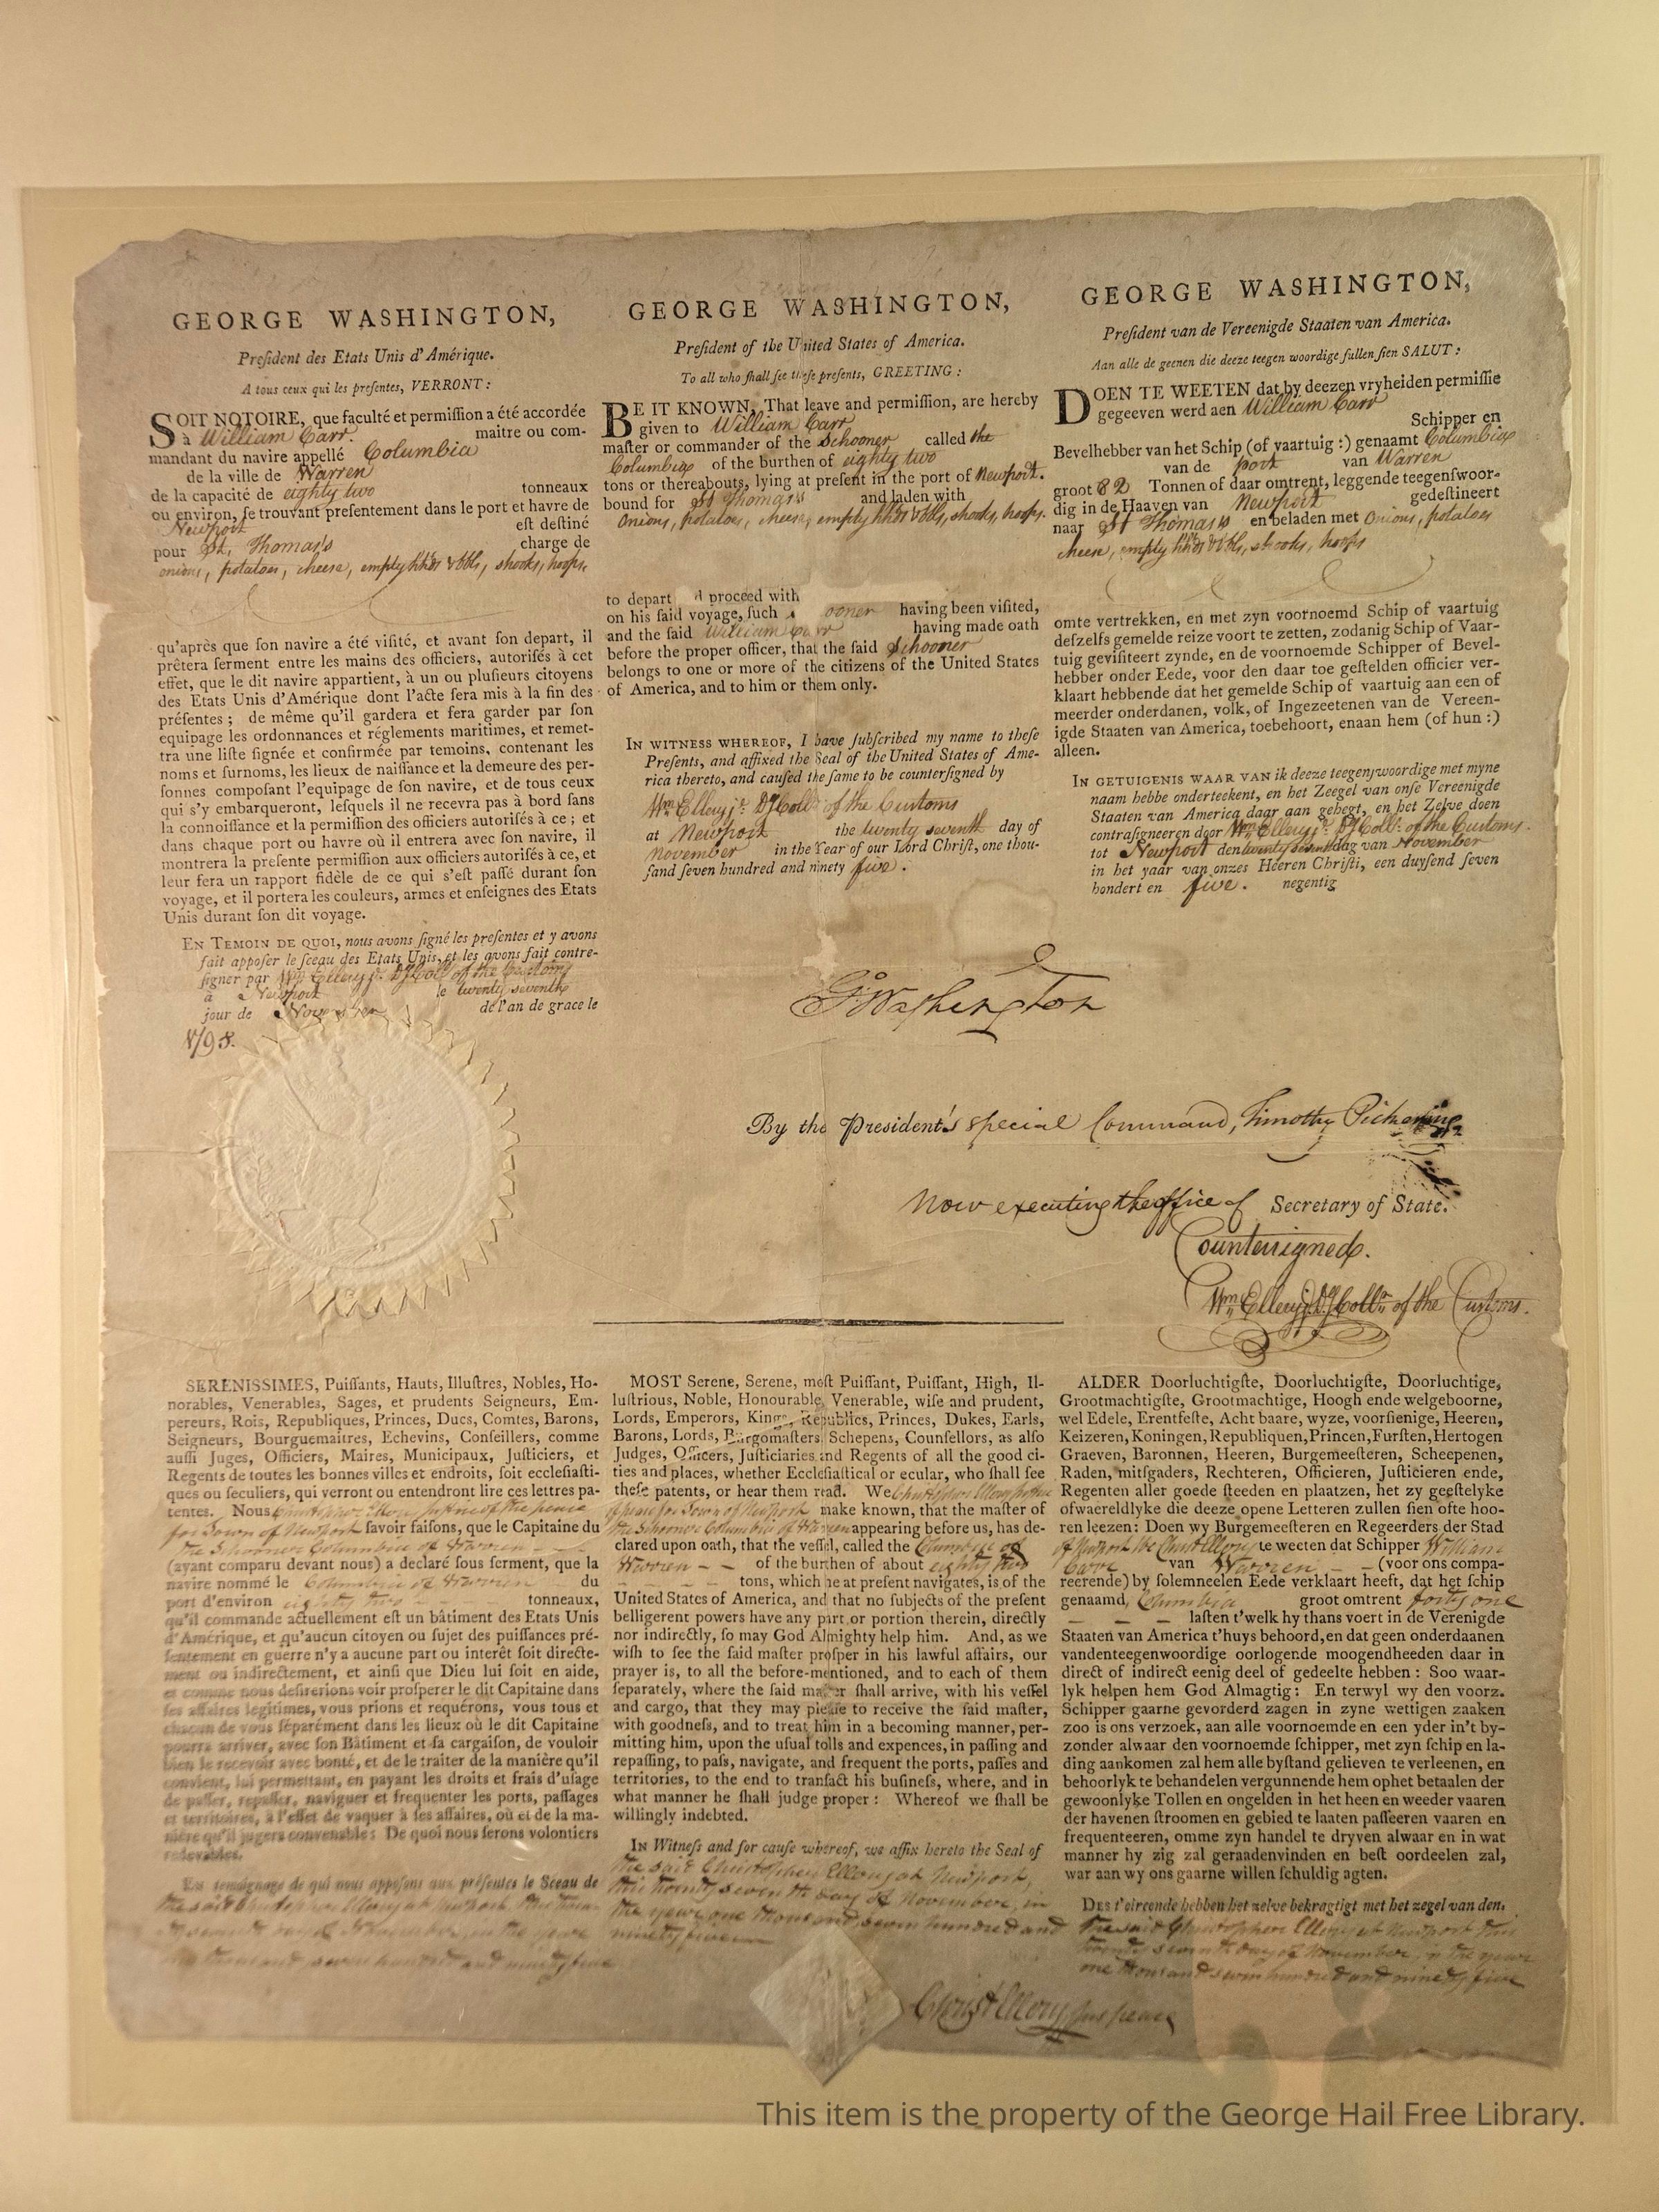 GEORGE WASHINGTON,
Preſident des Etats Unis d'Amérique.
A tous ceux qui les preſentes, VERRONT :
SOIT NOTOIRE, que faculté et permiſſion a été accordée
à William Carr. maitre ou com-
mandant du navire appellé Columbia
de la ville de Warren
de la capacité de eighty two tonneaux
ou environ, ſe trouvant preſentement dans le port et havre de
Newport eſt deſtiné
pour St. Thomas's charge de
onions, potatoes, cheese, empty hhds & bbls, shooks, hoops,
qu'après que ſon navire a été viſité, et avant ſon depart, il
prêtera ſerment entre les mains des officiers, autoriſés à cet
effet, que le dit navire appartient, à un ou pluſieurs citoyens
des Etats Unis d'Amérique dont l'acte ſera mis à la fin des
préſentes ; de même qu'il gardera et fera garder par ſon
equipage les ordonnances et réglements maritimes, et remet-
tra une liſte ſignée et confirmée par temoins, contenant les
noms et ſurnoms, les lieux de naiſſance et la demeure des per-
ſonnes compoſant l'equipage de ſon navire, et de tous ceux
qui s'y embarqueront, leſquels il ne recevra pas à bord ſans
la connoiſſance et la permiſſion des officiers autoriſés à ce ; et
dans chaque port ou havre où il entrera avec ſon navire, il
montrera la preſente permiſſion aux officiers autoriſés à ce, et
leur fera un rapport fidèle de ce qui s'eſt paſſé durant ſon
voyage, et il portera les couleurs, armes et enſeignes des Etats
Unis durant ſon dit voyage.
EN TEMOIN DE QUOI, nous avons ſigné les preſentes et y avons
fait appoſer le ſceau des Etats Unis, et les avons fait contre-
ſigner par Wm Ellery jr. Dy Coll of the Customs
à Newport le twenty seventh
jour de November de l'an de grace le
1795.
GEORGE WASHINGTON,
Preſident of the United States of America.
To all who ſhall ſee theſe preſents, GREETING :
BE IT KNOWN, That leave and permiſſion, are hereby
given to William Carr
maſter or commander of the Schooner called the
Columbia of the burthen of eighty two
tons or thereabouts, lying at preſent in the port of Newport.
bound for St Thomas's and laden with
Onions, potatoes, cheese, empty hhds & bbls, shooks, hoops.
to depart d proceed with
on his ſaid voyage, ſuch ooner having been viſited,
and the ſaid William Carr having made oath
before the proper officer, that the ſaid Schooner
belongs to one or more of the citizens of the United States
of America, and to him or them only.
IN WITNESS WHEREOF, I have ſubſcribed my name to theſe
Preſents, and affixed the Seal of the United States of Ame-
rica thereto, and cauſed the ſame to be counterſigned by
Wm Ellery jr. Dy Coll of the Customs
at Newport the twenty seventh day of
November in the Year of our Lord Chriſt, one thou-
ſand ſeven hundred and ninety five.
GEORGE WASHINGTON,
Preſident van de Vereenigde Staaten van America.
Aan alle de geenen die deeze teegen woordige ſullen ſien SALUT :
DOEN TE WEETEN dat by deezen vryheiden permiſſie
gegeeven werd aen William Carr
Schipper en
Bevelhebber van het Schip (of vaartuig :) genaamt Columbia
van de port van Warren
groot 82 Tonnen of daar omtrent, leggende teegenſwoor-
dig in de Haaven van Newport gedeſtineert
naar St Thomas's en beladen met Onions, potatoes
cheese, empty hhds & bbls, shooks, hoops
omte vertrekken, en met zyn voornoemd Schip of vaartuig
deſzelfs gemelde reize voort te zetten, zodanig Schip of Vaar-
tuig geviſiteert zynde, en de voornoemde Schipper of Bevel-
hebber onder Eede, voor den daar toe geſtelden officier ver-
klaart hebbende dat het gemelde Schip of vaartuig aan een of
meerder onderdanen, volk, of Ingezeetenen van de Vereen-
igde Staaten van America, toebehoort, enaan hem (of hun :)
alleen.
IN GETUIGENIS WAAR VAN ik deeze teegenzwoordige met myne
naam hebbe onderteekent, en het Zeegel van onſe Vereenigde
Staaten van America daar aan gehegt, en het Zelve doen
contraſigneeren door Wm Ellery jr. Dy Coll. of the Customs.
tot Newport den twenty seventh dag van November
in het yaar van onzes Heeren Chriſti, een duyſend ſeven
hondert en five. negentig
Go Washington
By the President's special Command, Timothy Pickering
Now executing the office of Secretary of State.
Countersigned.
Wm Ellery jr Dy Collr of the Customs.
SERENISSIMES, Puiſſants, Hauts, Illuſtres, Nobles, Ho-
norables, Venerables, Sages, et prudents Seigneurs, Em-
pereurs, Rois, Republiques, Princes, Ducs, Comtes, Barons,
Seigneurs, Bourguemaitres, Echevins, Conſeillers, comme
auſſi Juges, Officiers, Maires, Municipaux, Juſticiers, et
Regents de toutes les bonnes villes et endroits, ſoit eccleſiaſti-
ques ou ſeculiers, qui verront ou entendront lire ces lettres pa-
tentes. Nous Christopher Ellery justice of the peace
for Town of Newport ſavoir faiſons, que le Capitaine du
the Schooner Columbia of Warren
(ayant comparu devant nous) a declaré ſous ſerment, que la
navire nommé le Columbia of Warren du
port d'environ eighty two tonneaux,
qu'il commande actuellement eſt un bâtiment des Etats Unis
d'Amérique, et qu'aucun citoyen ou ſujet des puiſſances pré-
ſentement en guerre n'y a aucune part ou interêt ſoit directe-
ment ou indirectement, et ainſi que Dieu lui ſoit en aide,
et comme nous deſirerions voir proſperer le dit Capitaine dans
ſes affaires legitimes, vous prions et requérons, vous tous et
chacun de vous ſéparément dans les lieux où le dit Capitaine
pourra arriver, avec ſon Bâtiment et ſa cargaiſon, de vouloir
bien le recevoir avec bonté, et de le traiter de la manière qu'il
convient, lui permettant, en payant les droits et frais d'uſage
de paſſer, repaſſer, naviguer et frequenter les ports, paſſages
et territoires, à l'effet de vaquer à ſes affaires, où et de la ma-
nière qu'il jugera convenable : De quoi nous ſerons volontiers
redevables.
En temoignage de qui nous appoſons aux préſentes le Sceau de
the said Christopher Ellery at Newport this twen-
ty seventh day of November, in the year
one thousand seven hundred and ninety five
MOST Serene, Serene, moſt Puiſſant, Puiſſant, High, Il-
luſtrious, Noble, Honourable, Venerable, wiſe and prudent,
Lords, Emperors, Kings, Republics, Princes, Dukes, Earls,
Barons, Lords, Burgomaſters, Schepens, Counſellors, as alſo
Judges, Officers, Juſticiaries and Regents of all the good ci-
ties and places, whether Eccleſiaſtical or ecular, who ſhall ſee
theſe patents, or hear them read. We Christopher Ellery justice
of peace for Town of Newport make known, that the maſter of
the Schooner Columbia of Warren appearing before us, has de-
clared upon oath, that the veſſel, called the Columbia of
Warren of the burthen of about eighty two
tons, which he at preſent navigates, is of the
United States of America, and that no ſubjects of the preſent
belligerent powers have any part or portion therein, directly
nor indirectly, ſo may God Almighty help him. And, as we
wiſh to ſee the ſaid maſter proſper in his lawful affairs, our
prayer is, to all the before-mentioned, and to each of them
ſeparately, where the ſaid maſter ſhall arrive, with his veſſel
and cargo, that they may pleaſe to receive the ſaid maſter,
with goodneſs, and to treat him in a becoming manner, per-
mitting him, upon the uſual tolls and expences, in paſſing and
repaſſing, to paſs, navigate, and frequent the ports, paſſes and
territories, to the end to tranſact his buſineſs, where, and in
what manner he ſhall judge proper : Whereof we ſhall be
willingly indebted.
IN Witneſs and for cauſe whereof, we affix hereto the Seal of
the said Christopher Ellery at Newport,
this twenty seventh day of November, in
the year one thousand seven hundred and
ninety five
ALDER Doorluchtigſte, Doorluchtigſte, Doorluchtige,
Grootmachtigſte, Grootmachtige, Hoogh ende welgeboorne,
wel Edele, Erentfeſte, Acht baare, wyze, voorſienige, Heeren,
Keizeren, Koningen, Republiquen, Princen, Furſten, Hertogen
Graeven, Baronnen, Heeren, Burgemeeſteren, Scheepenen,
Raden, mitſgaders, Rechteren, Officieren, Juſticieren ende,
Regenten aller goede ſteeden en plaatzen, het zy geeſtelyke
ofwaereldlyke die deeze opene Letteren zullen ſien ofte hoo-
ren leezen : Doen wy Burgemeeſteren en Regeerders der Stad
of Newport Christ Ellery te weeten dat Schipper William
Carr van Warren (voor ons compa-
reerende) by ſolemneelen Eede verklaart heeft, dat het ſchip
genaamd, Columbia groot omtrent forty one
laſten t'welk hy thans voert in de Verenigde
Staaten van America t'huys behoord, en dat geen onderdaanen
vandenteegenwoordige oorlogende moogendheeden daar in
direct of indirect eenig deel of gedeelte hebben : Soo waar-
lyk helpen hem God Almagtig : En terwyl wy den voorz.
Schipper gaarne gevorderd zagen in zyne wettigen zaaken
zoo is ons verzoek, aan alle voornoemde en een yder in't by-
zonder alwaar den voornoemde ſchipper, met zyn ſchip en la-
ding aankomen zal hem alle byſtand gelieven te verleenen, en
behoorlyk te behandelen vergunnende hem ophet betaalen der
gewoonlyke Tollen en ongelden in het heen en weeder vaaren
der havenen ſtroomen en gebied te laaten paſſeeren vaaren en
frequenteeren, omme zyn handel te dryven alwaar en in wat
manner hy zig zal geraadenvinden en beſt oordeelen zal,
war aan wy ons gaarne willen ſchuldig agten.
DES t'oirconde hebben het zelve bekragtigt met het zegel van den.
the said Christopher Ellery at Newport this
twenty seventh day of November, in the year
one thousand seven hundred and ninety five
Christ Ellery Jus peace
This item is the property of the George Hail Free Library.